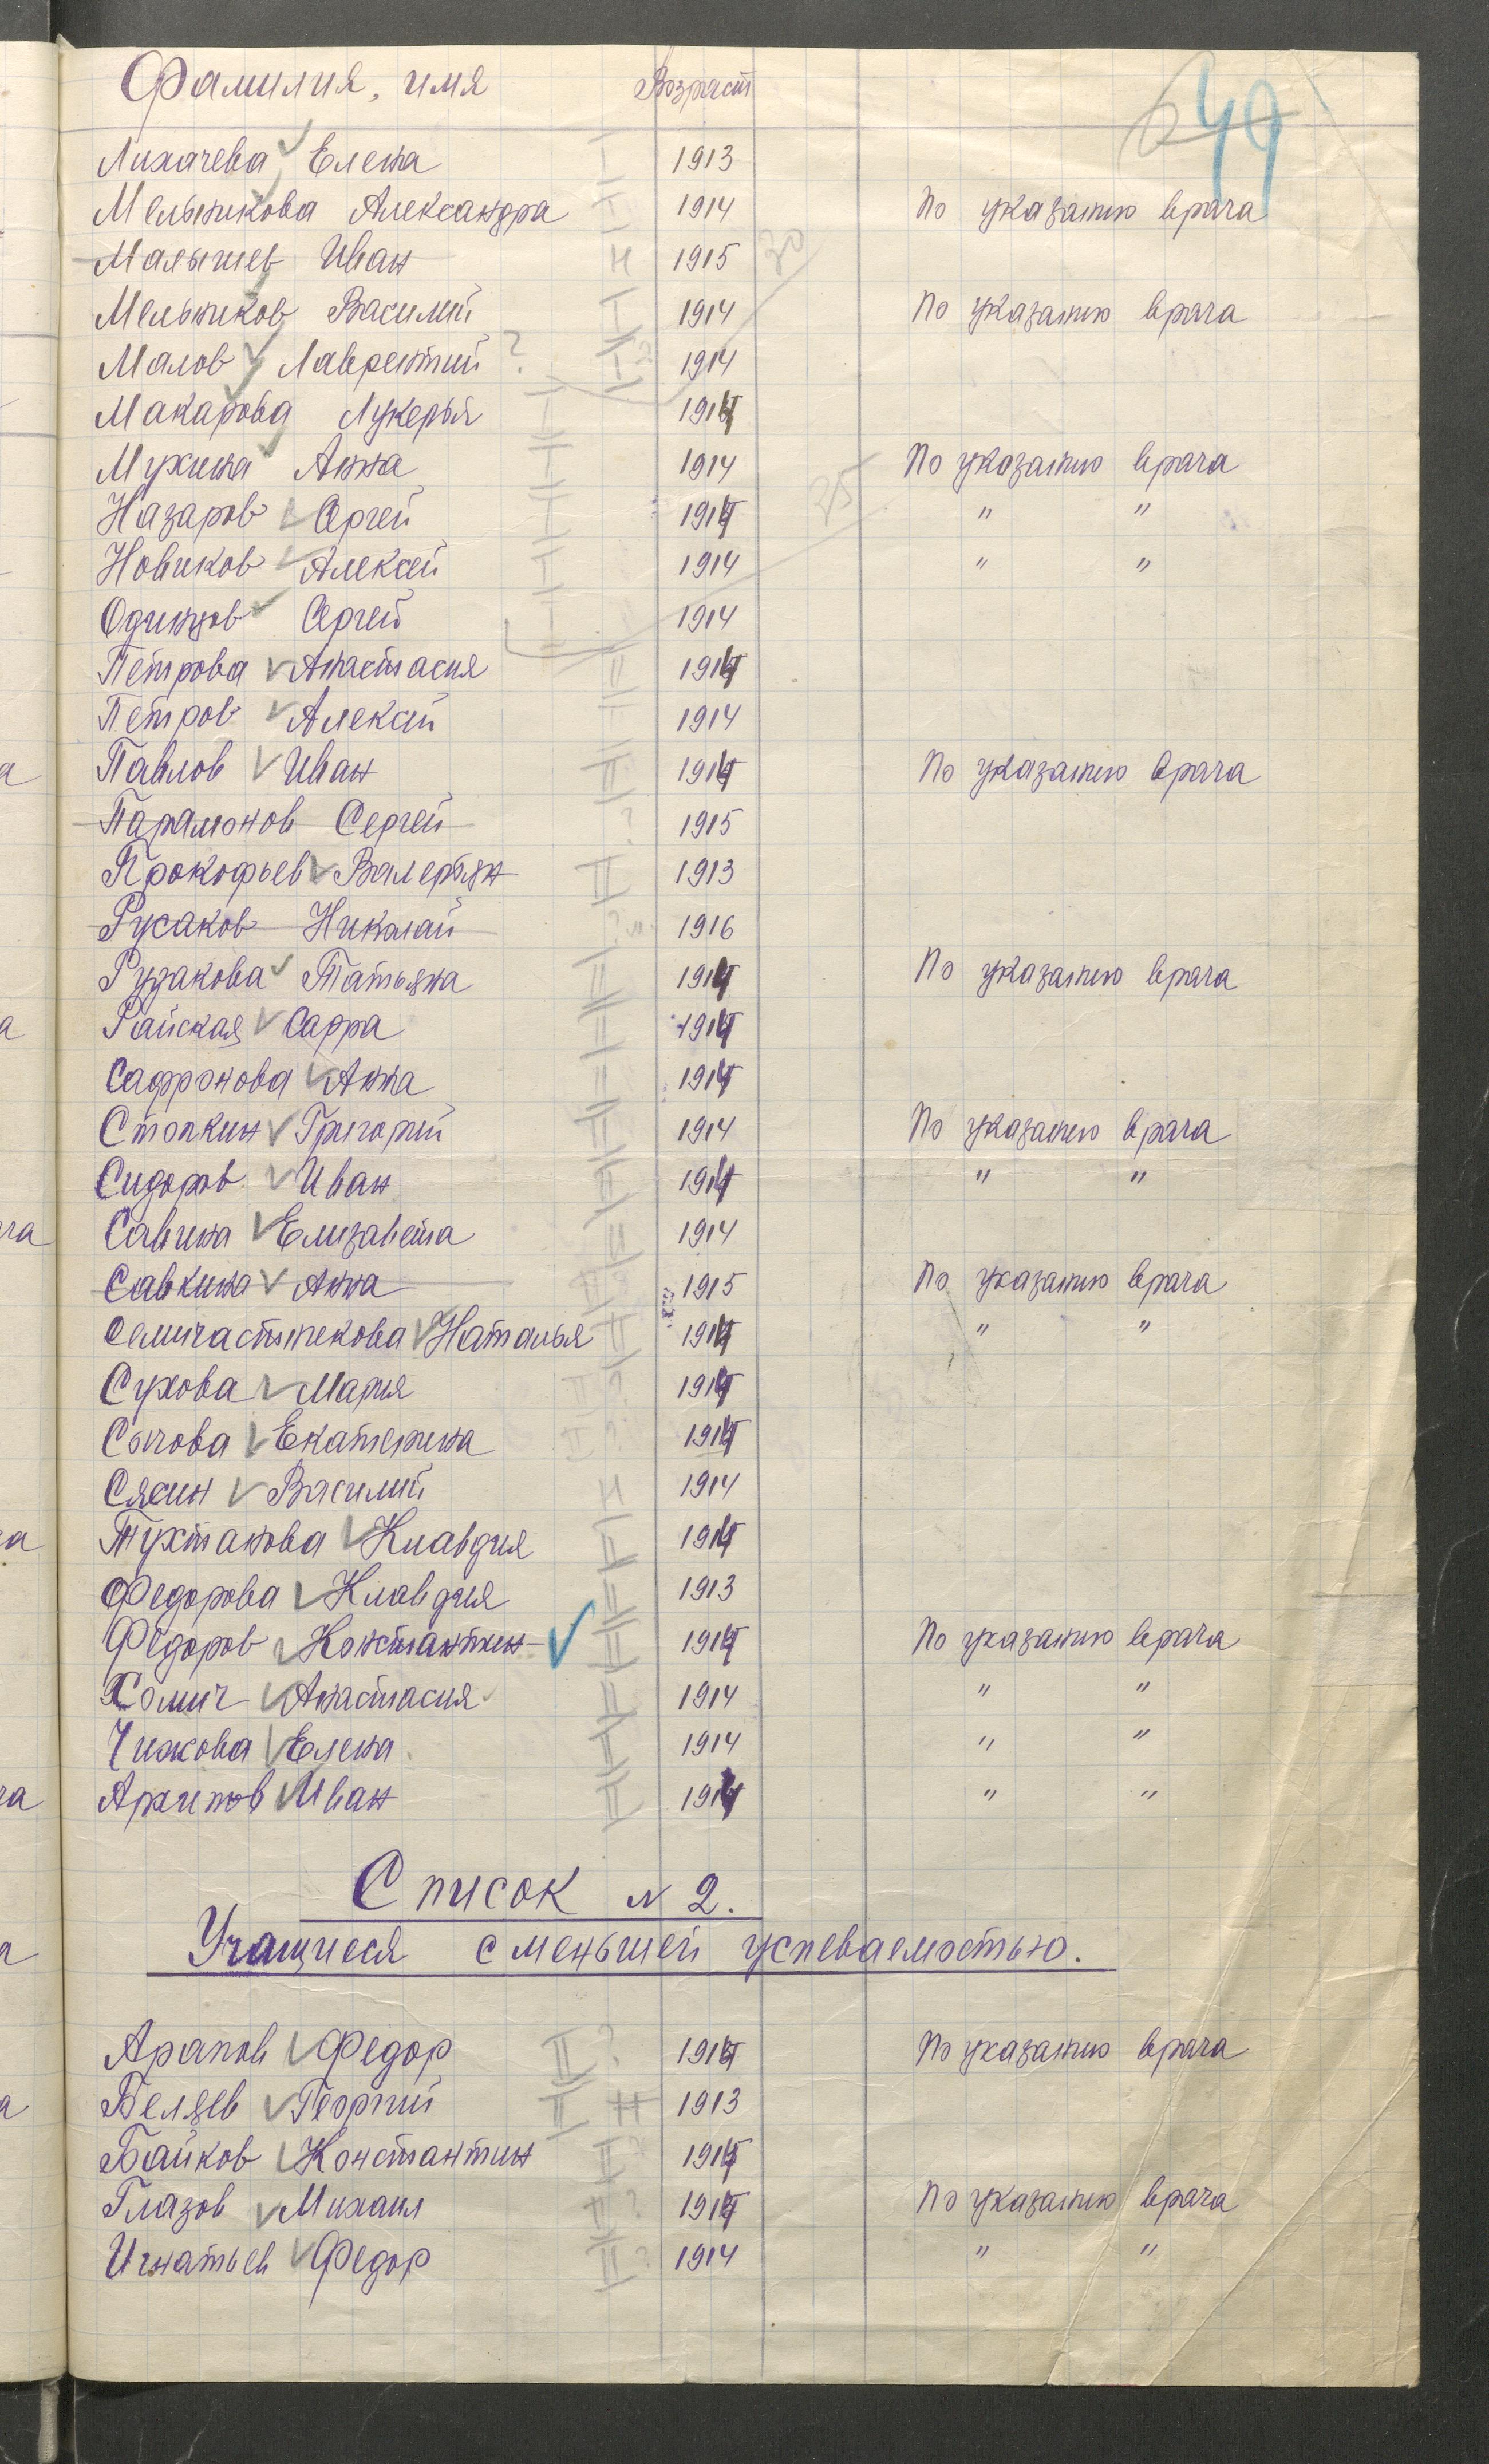 Фамилия, имя Возраст 49
Лихачева Елена I 1913
Мельникова Александра I 1914 По указанию врача
Малышев Иван Н 1915 30
Мельников Василий I 1914 По указанию врача
Малов Лаврентий ? I ? 1914
Макарова Лукерья I 1914
Мухина Анна I 1914 По указанию врача
Назаров Сергей I 1914 " "
Новиков Алексей I 1914 " "
Одинцов Сергей I 1914
Петрова Анастасия II 1914
Петров Алексей II 1914
Павлов Иван II 1914 По указанию врача
Парамонов Сергей ? 1915
Прокофьев Валерьян II 1913
Русаков Николай ? 1916
Рузакова Татьяна II 1914 По указанию врача
Райская Сарра II 1914
Сафронова Анна II 1914
Стопкин Григорий II 1914 По указанию врача
Сидоров Иван II 1914 " "
Савина Елизавета II 1914
Савкина Анна II ? 1915 По указанию врача
Семичастнекова Наталья II 1914 " "
Сухова Мария II ? 1914
Сычова Екатерина II ? 1914
Сясин Василий Н 1914
Тухтанова Клавдия II 1914
Федорова Клавдия II 1913
Федоров Константин II 1914 По указанию врача
Хомич Анастасия II 1914 " "
Чижова Елена II 1914 " "
Архипов Иван II 1914 " "
Список N 2.
Учащиеся с меньшей успеваемостью.
Арапов Федор II ? 1914 По указанию врача
Беляев Георгий II 1913
Байков Константин II ? 1914
Глазов Михаил II ? 1914 По указанию врача
Игнатьев Федор II ? 1914 " "